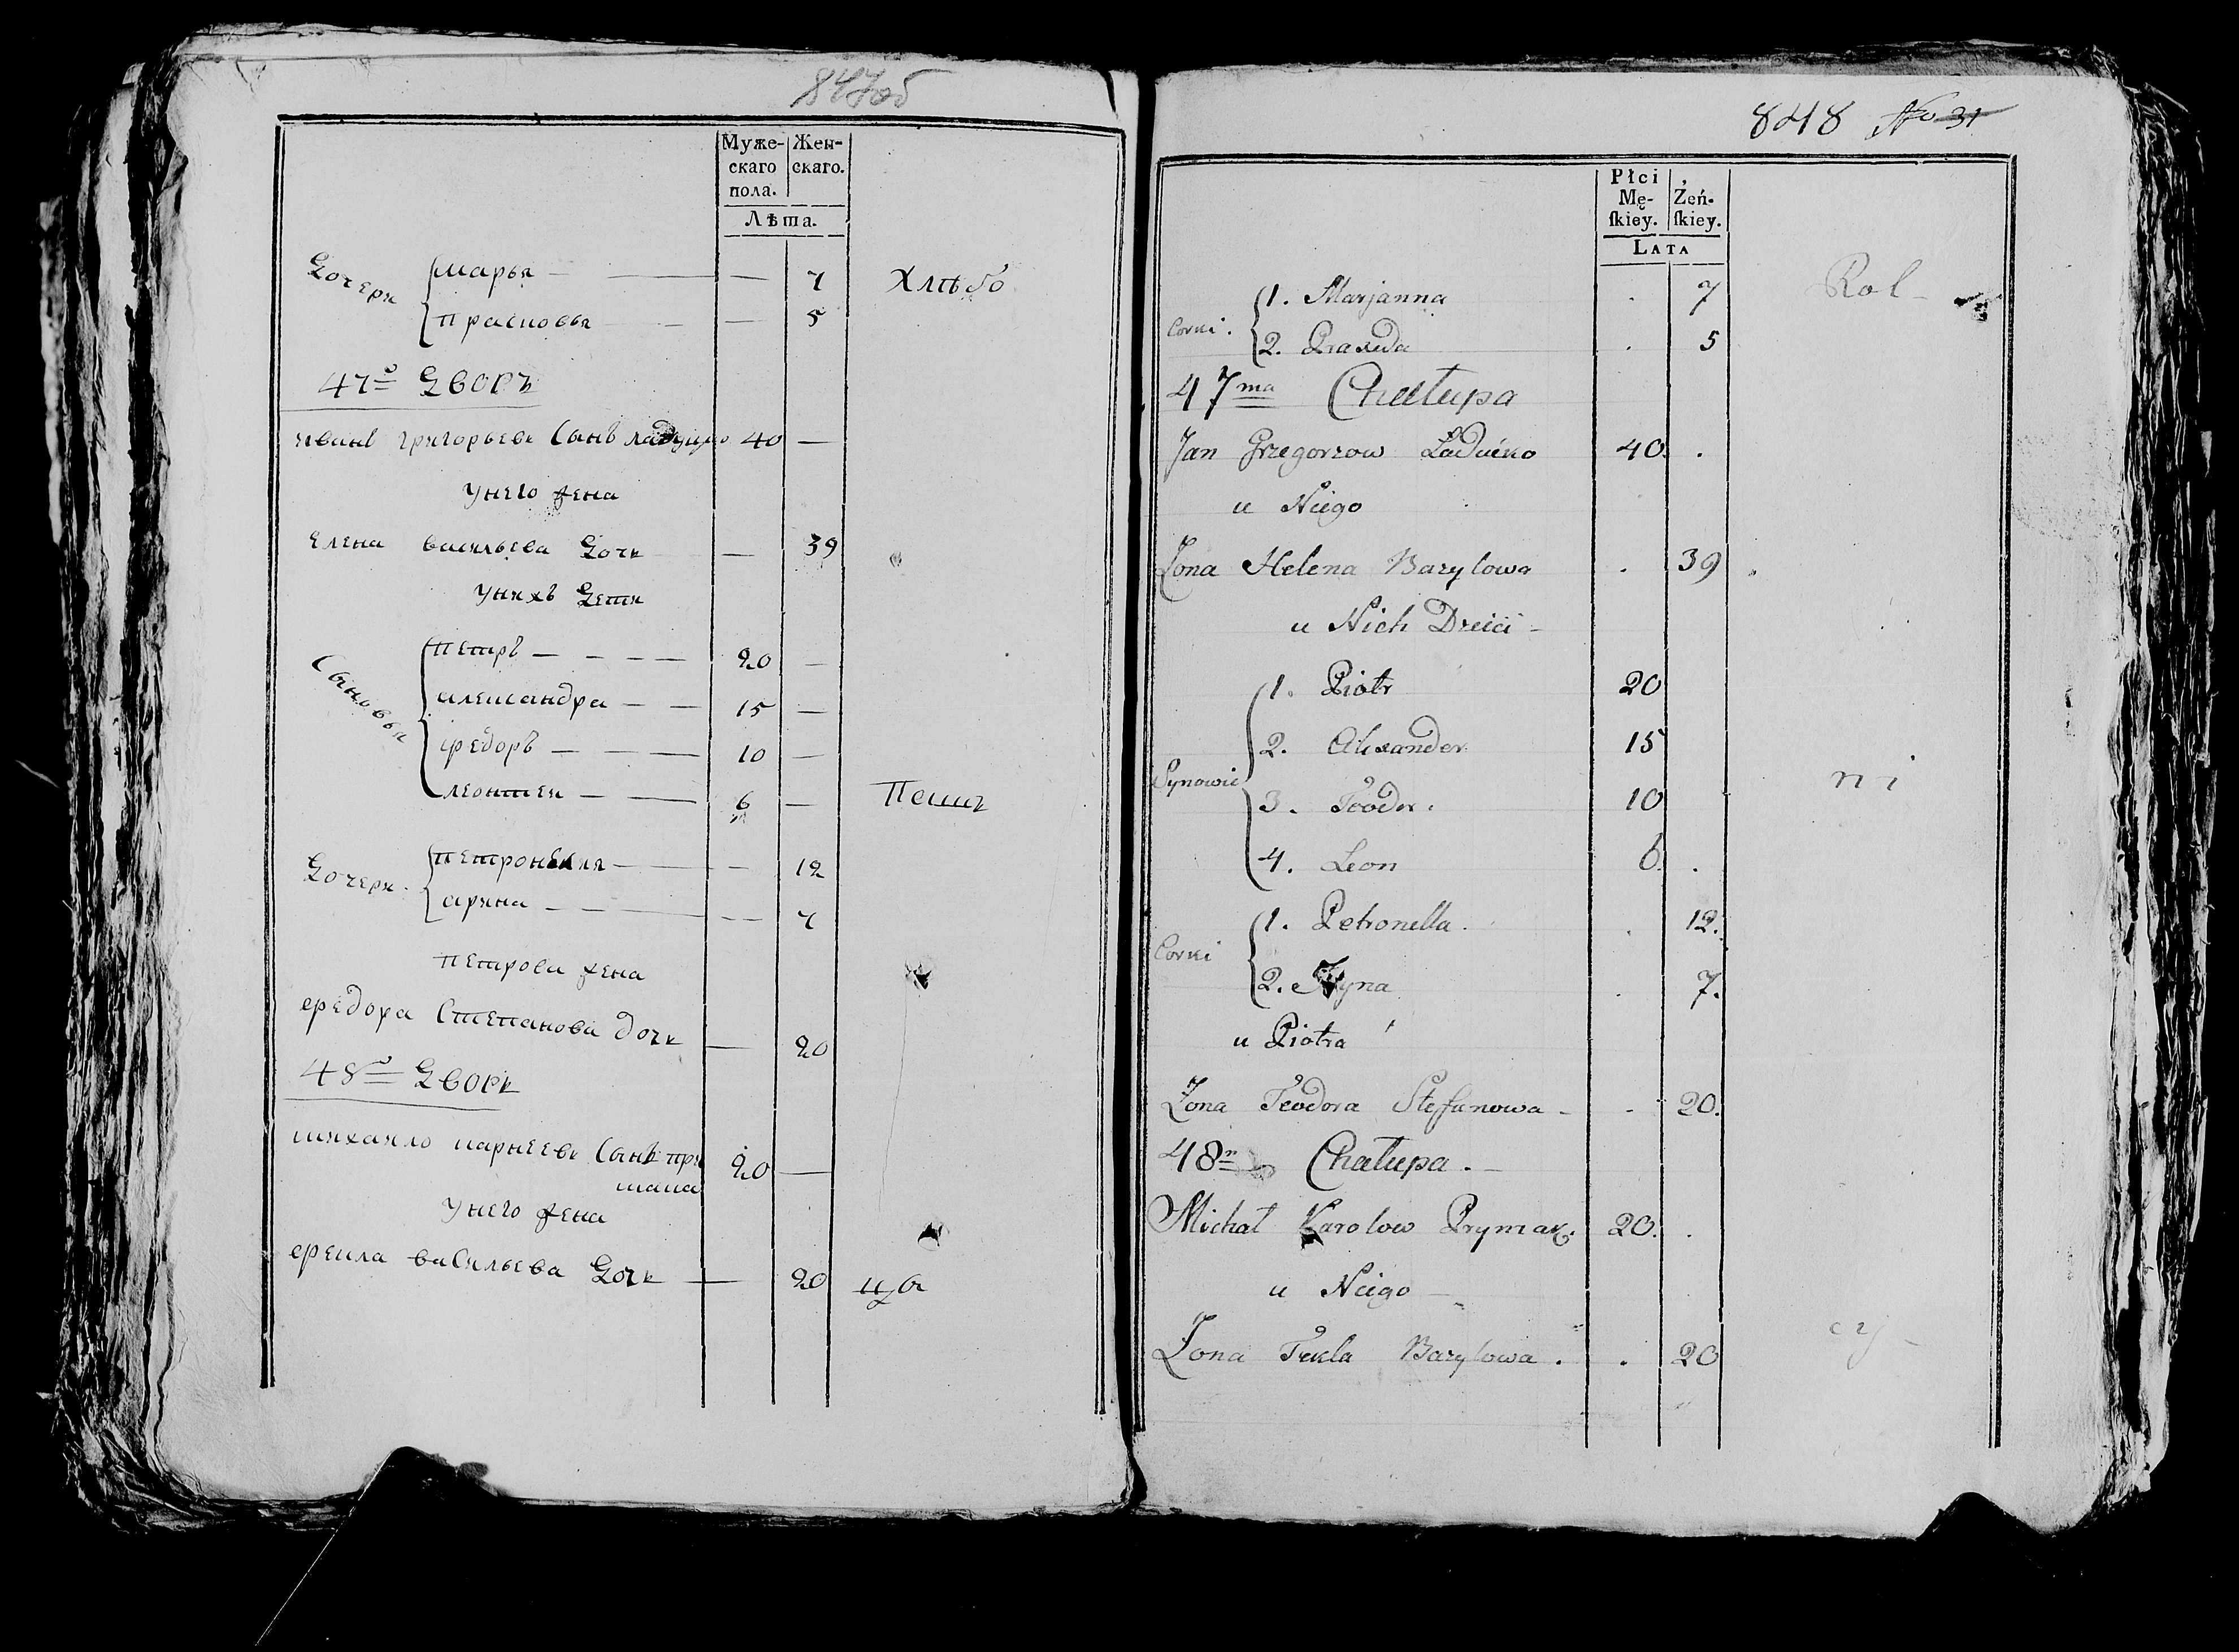 847об
Муже- Жен-
скаго скаго.
пола.
Лѣта.
Дочери
Марья — — — 7 Хлѣбо
Прасковья — — 5
47й Дворъ
Иванъ Григорьевъ Сынъ Ладутко 40 —
У него жена
Елена Васильева Дочь — 39
У нихъ Дети
Сыновья
Петръ — — — — 20 —
Александра — — 15 —
Федоръ — — — 10 —
Леонтеи — — 6 — Пашц
Дочери
Петронеля — — 12
Арина — — — 7
Петрова жена
Федора Степанова дочь — 20
48й Дворъ
Михаило Карнеевъ Сынъ При
мака 20 —
У него жена
Фекла Васильева Дочь — 20 цы
848 No 31
Płci Żeń-
Mę- skiey.
skiey.
LATA
Corki.
1. Marjanna . 7 Rol-
2. Praxeda . 5
47ma Chałupa
Jan Grzegorzow Ladućko 40. .
u Niego
Żona Helena Bazylowa . 39
u Nich Dzieci -
Synowie
1. Piotr 20
2. Alexander 15 ni
3. Teodor. 10
4. Leon 6. .
Corki
1. Petronella. . 12.
2. . 7.
u Piotra
Żona Teodora Stefanowa - . 20.
48a Chałupa. -
Michał Karolow Prymak. 20. .
u Niego
Żona Tekla Bazylowa. . 20 cy-